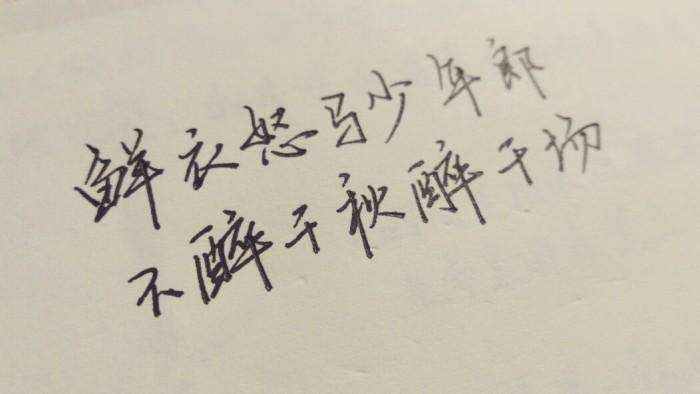 鲜衣怒马少年郎
不醉千秋醉千场